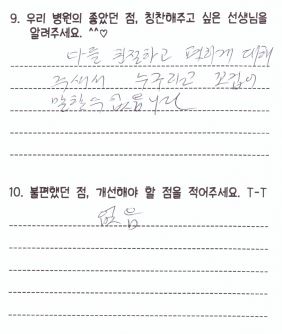 9. 우리 병원의 좋았던 점, 칭찬해주고 싶은 선생님을
알려주세요. ^^♡
다들 친절하고 편하게 대해
주셔서 누구라고 꼬집어
말할수 없읍니다
10. 불편했던 점, 개선해야 할 점을 적어주세요. T-T
없음